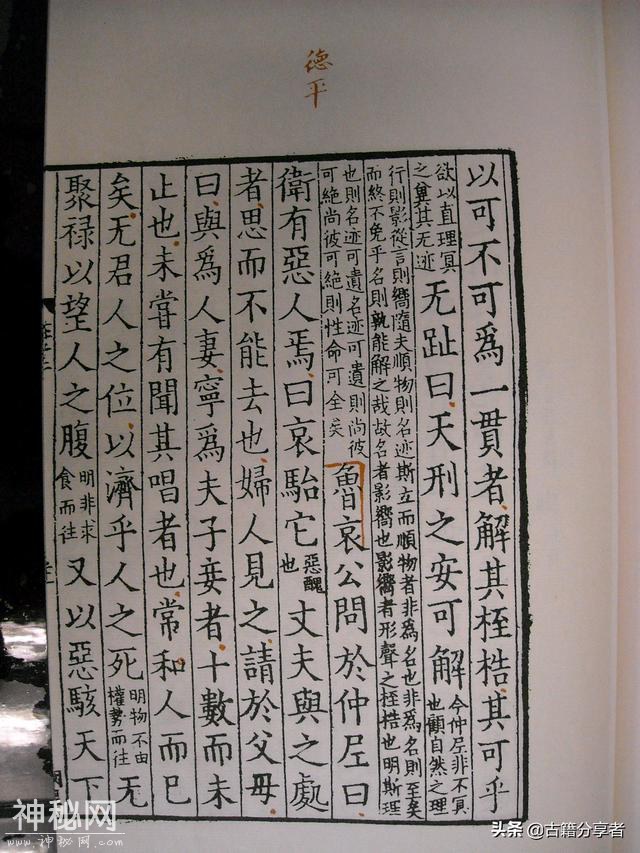 德平
以可不可爲一貫者解其桎梏其可乎
欲以直理冥
之冀其无迹
无趾曰天刑之安可解
今仲尼非不冥
也顧自然之理
行則影從言則嚮隨夫順物則名迹斯立而順物者非爲名也非爲名則至矣
而終不免乎名則孰能解之哉故名者影嚮也影嚮者形聲之桎梏也明斯理
也則名迹可遺名迹可遺則尚彼
可絶尚彼可絶則性命可全矣
魯哀公問於仲尼曰
衛有惡人焉曰哀駘它
惡醜
也
丈夫與之處
者思而不能去也婦人見之請於父母
曰與爲人妻寧爲夫子妾者十數而未
止也未嘗有聞其唱者也常和人而已
矣无君人之位以濟乎人之死
明物不由
權勢而往
无
聚禄以望人之腹
明非求
食而往
又以惡駭天下
神秘网
www.神秘网.com
头条 @古籍分享者